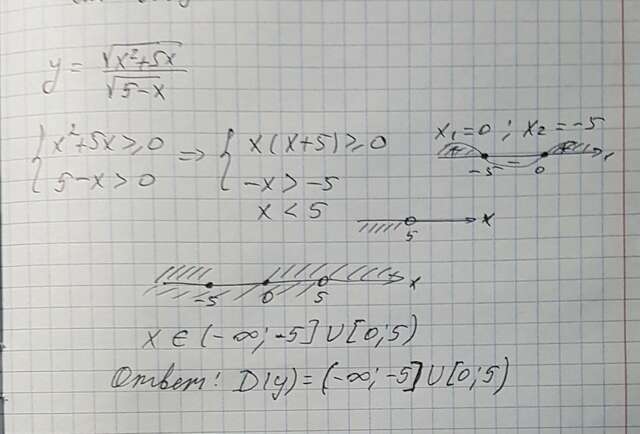 y = √(x²+5x) / √(5-x)
{ x²+5x ≥ 0 ⇒ { x(x+5) ≥ 0 x₁=0 ; x₂=-5
5-x > 0 -x > -5
x < 5
+ - + -5 0
5 x
-5 0 5 x
x ∈ (-∞; -5] ∪ [0; 5)
Ответ: D(y) = (-∞; -5] ∪ [0; 5)